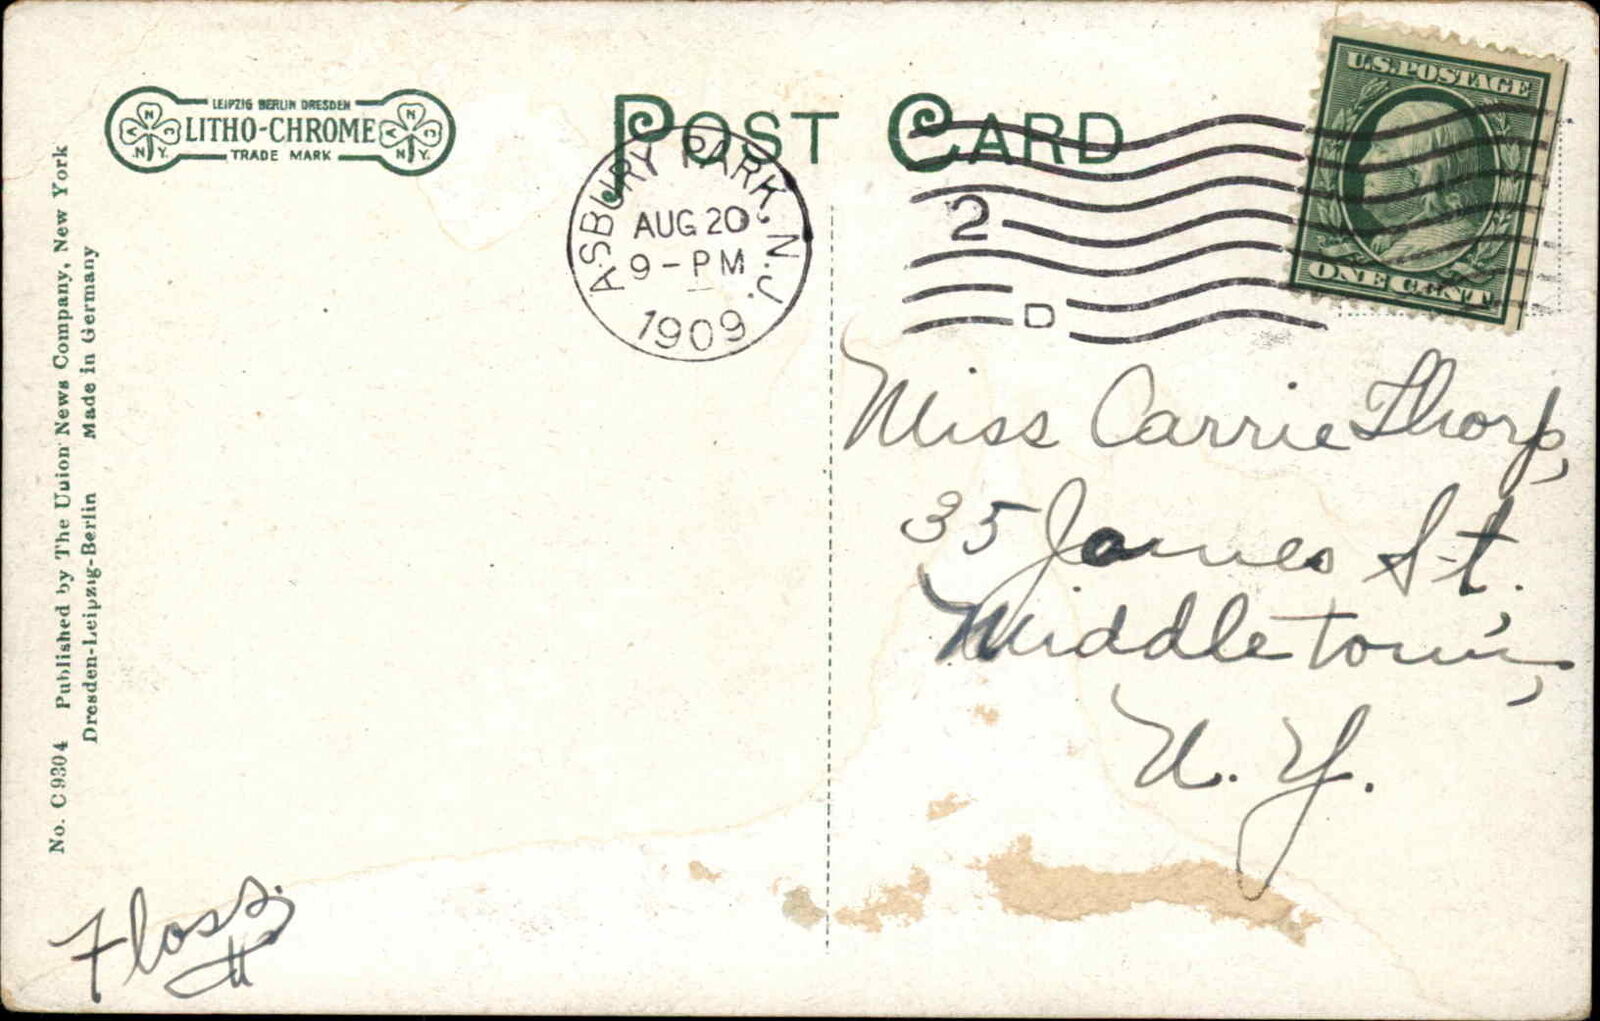 LEIPZIG BERLIN DRESDEN
LITHO-CHROME
TRADE MARK
N N
A C A C
N.Y. N.Y.
POST CARD
U.S. POSTAGE
ONE CENT
ASBURY PARK, N.J.
AUG 20
9-PM
1909
2
D
No. C 9304 Published by The Union News Company, New York
Dresden-Leipzig-Berlin Made in Germany
Miss Carrie Thorp,
35 James St.
Middletown,
N. Y.
Floss